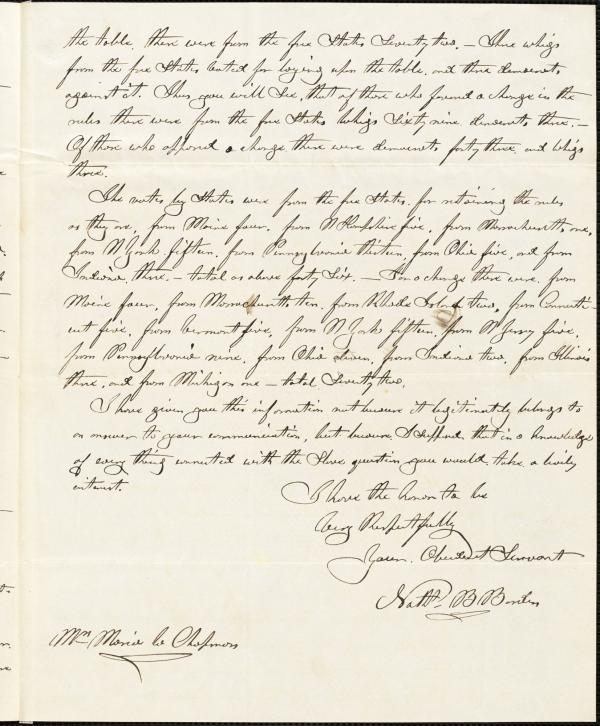 the table, there were from the free States Seventy two. – Three whigs
from the free States voted for laying upon the table, and three democrats
against it. Thus you will see, that of those who favored a change in the
rules there were from the free States Whigs Sixty nine democrats three. –
Of those who opposed a change there were democrats forty three, and whigs
three.
The votes by States were from the free States, for retaining the rules
as they are, from Maine four, from N Hampshire five, from Massachusetts, one,
from N York fifteen, from Pennsylvania thirteen, from Ohio five, and from
Indiana, three. – total as above forty Six. – For a change there were from
Maine four, from Massachusetts ten, from Rhode Island two, from Connecti-
cut five, from Vermont five, from N York fifteen, from N Jersey five,
from Pennsylvania nine, from Ohio Seven, from Indiana two, from Illinois
three, and from Michigan one – total Seventy two.
I have given you this information not because it legitimately belongs to
an answer to your communication, but because I suppose, that in a knowledge
of every thing connected with the Slave question you would take a lively
interest.
I have the honor to be
Very Respectfully
Your Obedient Servant
Nathl. B Borden
Mrs Maria W Chapman